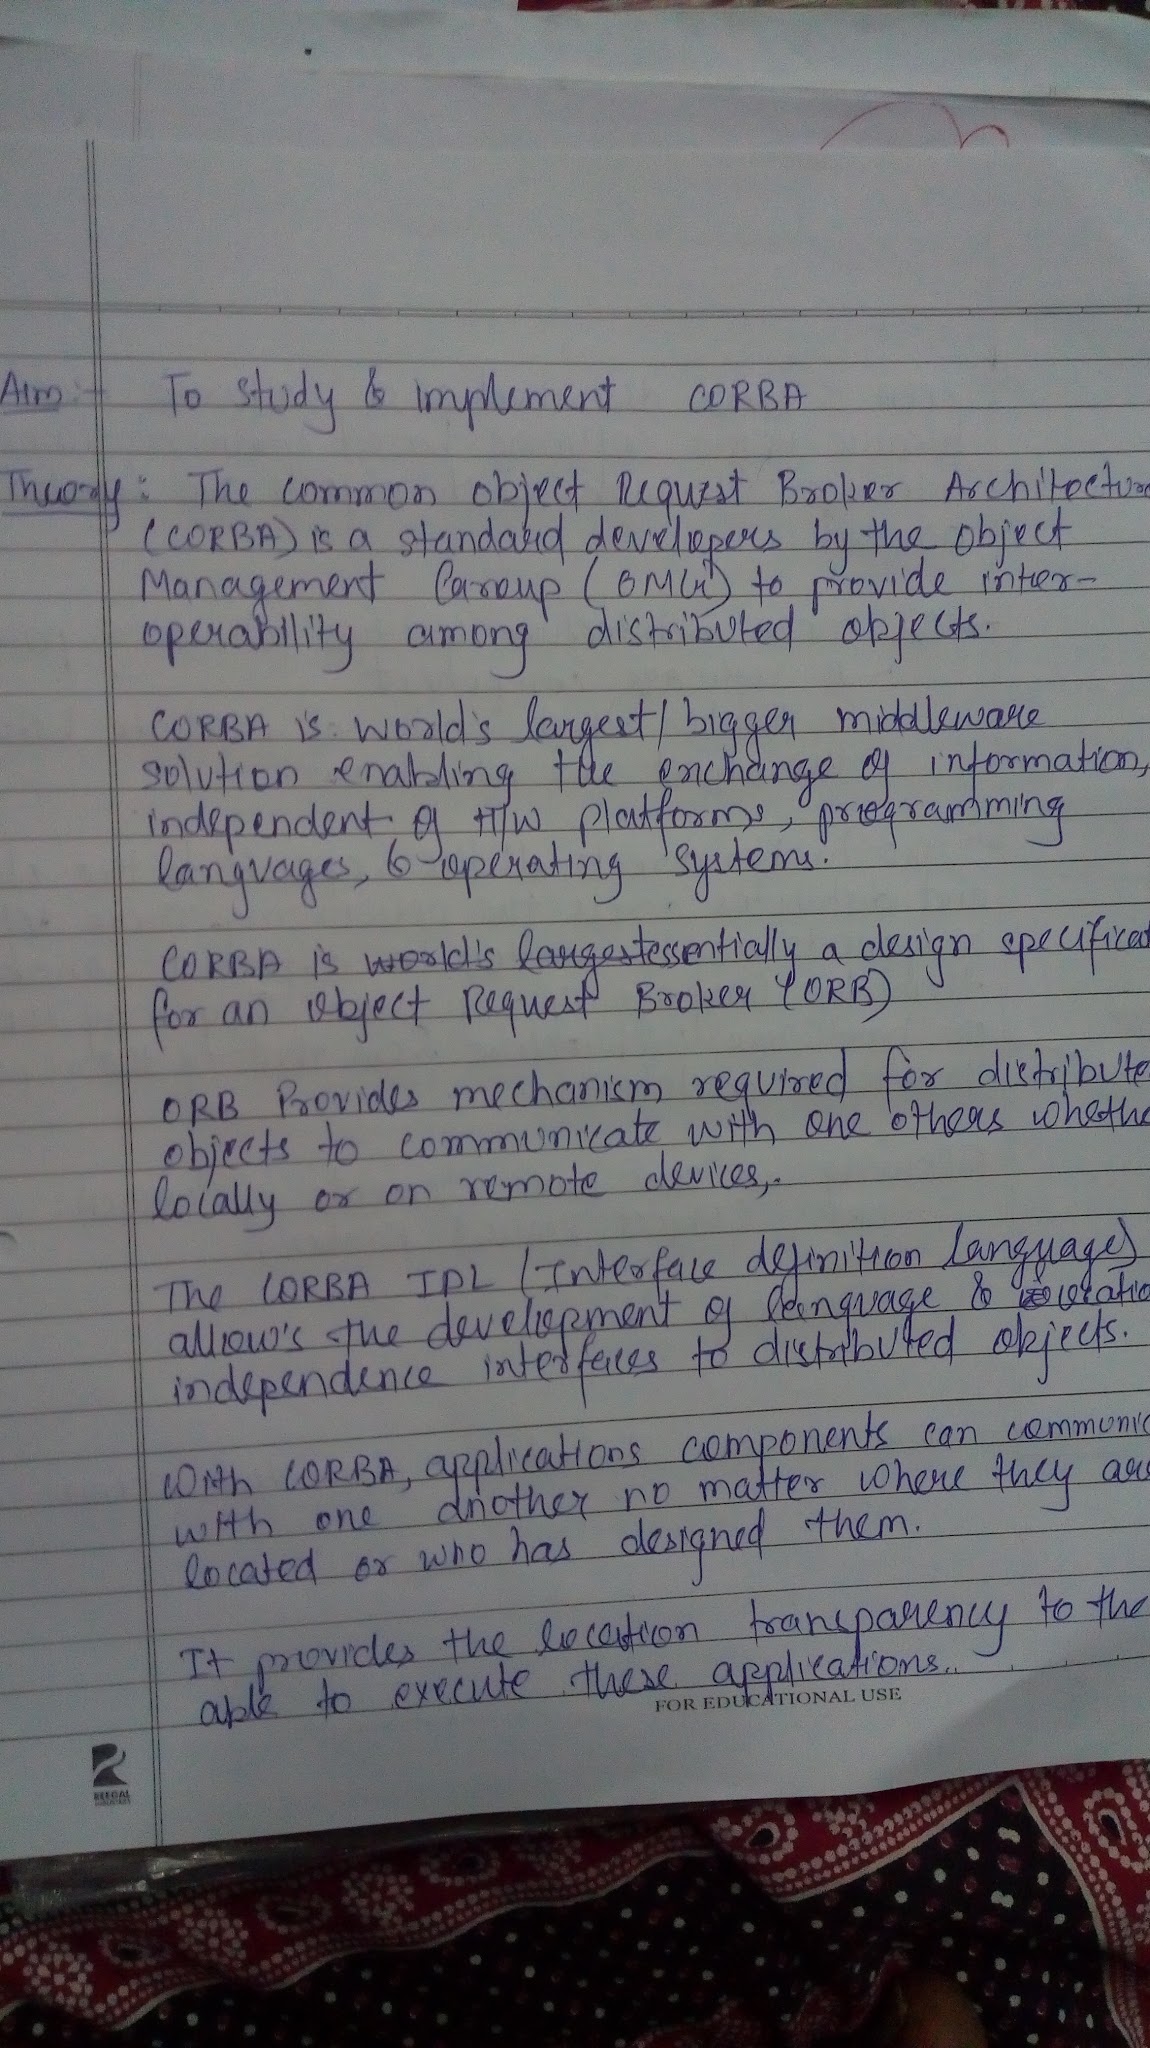 Aim :- To study & implement CORBA
Theory : The common object Request Broker Architecture
(CORBA) is a standard developers by the object
Management Group (OMG) to provide inter-
operability among distributed objects.
CORBA is world's largest/bigger middleware
solution enabling the exchange of information,
independent of H/W platforms, programming
languages, & operating systems.
CORBA is world's largest essentially a design specificat
for an object Request Broker (ORB)
ORB Provides mechanism required for distribute
objects to communicate with one others whethe
locally or on remote devices,.
The CORBA IDL (Interface definition language)
allow's the development of language & location
independence interfaces to distributed objects.
With CORBA, applications components can communic
with one another no matter where they are
located or who has designed them.
It provides the location transparency to the
able to execute these applications.
FOR EDUCATIONAL USE
REEGAL